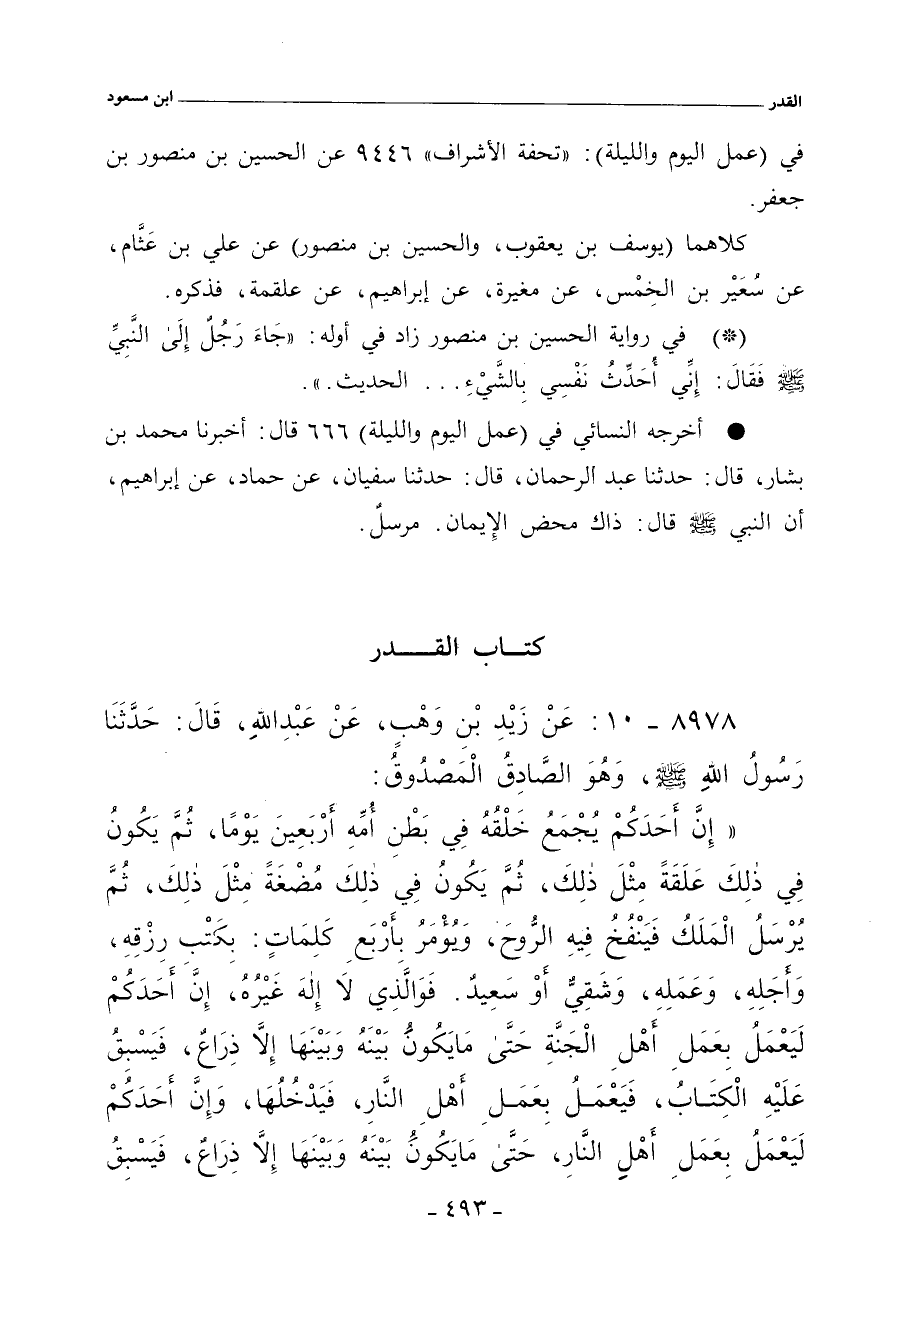 القدر ــــــــــــــــــــ ابن مسعود
في (عمل اليوم والليلة): «تحفة الأشراف» ٩٤٤٦ عن الحسين بن منصور بن
جعفر.
كلاهما (يوسف بن يعقوب، والحسين بن منصور) عن علي بن عَثَّام،
عن سُعَيْر بن الخِمْس، عن مغيرة، عن إبراهيم، عن علقمة، فذكره.
(*) في رواية الحسين بن منصور زاد في أوله: «جَاءَ رَجُلٌ إِلَىٰ النَّبِيِّ
ﷺ فَقَالَ: إِنِّي أُحَدِّثُ نَفْسِي بِالشَّيْءِ... الحديث.».
● أخرجه النسائي في (عمل اليوم والليلة) ٦٦٦ قال: أخبرنا محمد بن
بشار، قال: حدثنا عبد الرحمان، قال: حدثنا سفيان، عن حماد، عن إبراهيم،
أن النبي ﷺ قال: ذاك محض الإِيمان. مرسلٌ.
كتـــاب القـــــدر
٨٩٧٨ - ١٠: عَنْ زَيْدِ بْنِ وَهْبٍ، عَنْ عَبْدِاللهِ، قَالَ: حَدَّثَنَا
رَسُولُ اللهِ ﷺ، وَهُوَ الصَّادِقُ الْمَصْدُوقُ:
« إِنَّ أَحَدَكُمْ يُجْمَعُ خَلْقُهُ فِي بَطْنِ أُمِّهِ أَرْبَعِينَ يَوْمًا، ثُمَّ يَكُونُ
فِي ذٰلِكَ عَلَقَةً مِثْلَ ذٰلِكَ، ثُمَّ يَكُونُ فِي ذٰلِكَ مُضْغَةً مِثْلَ ذٰلِكَ، ثُمَّ
يُرْسَلُ الْمَلَكُ فَيَنْفُخُ فِيهِ الرُّوحَ، وَيُؤْمَرُ بِأَرْبَعِ كَلِمَاتٍ: بِكَتْبِ رِزْقِهِ،
وَأَجَلِهِ، وَعَمَلِهِ، وَشَقِيٌّ أَوْ سَعِيدٌ. فَوَالَّذِي لَا إِلٰهَ غَيْرُهُ، إِنَّ أَحَدَكُمْ
لَيَعْمَلُ بِعَمَلِ أَهْلِ الْجَنَّةِ حَتَّىٰ مَايَكُونُ بَيْنَهُ وَبَيْنَهَا إِلَّا ذِرَاعٌ، فَيَسْبِقُ
عَلَيْهِ الْكِتَابُ، فَيَعْمَلُ بِعَمَلِ أَهْلِ النَّارِ، فَيَدْخُلُهَا، وَإِنَّ أَحَدَكُمْ
لَيَعْمَلُ بِعَمَلِ أَهْلِ النَّارِ، حَتَّىٰ مَايَكُونُ بَيْنَهُ وَبَيْنَهَا إِلَّا ذِرَاعٌ، فَيَسْبِقُ
- ٤٩٣ -